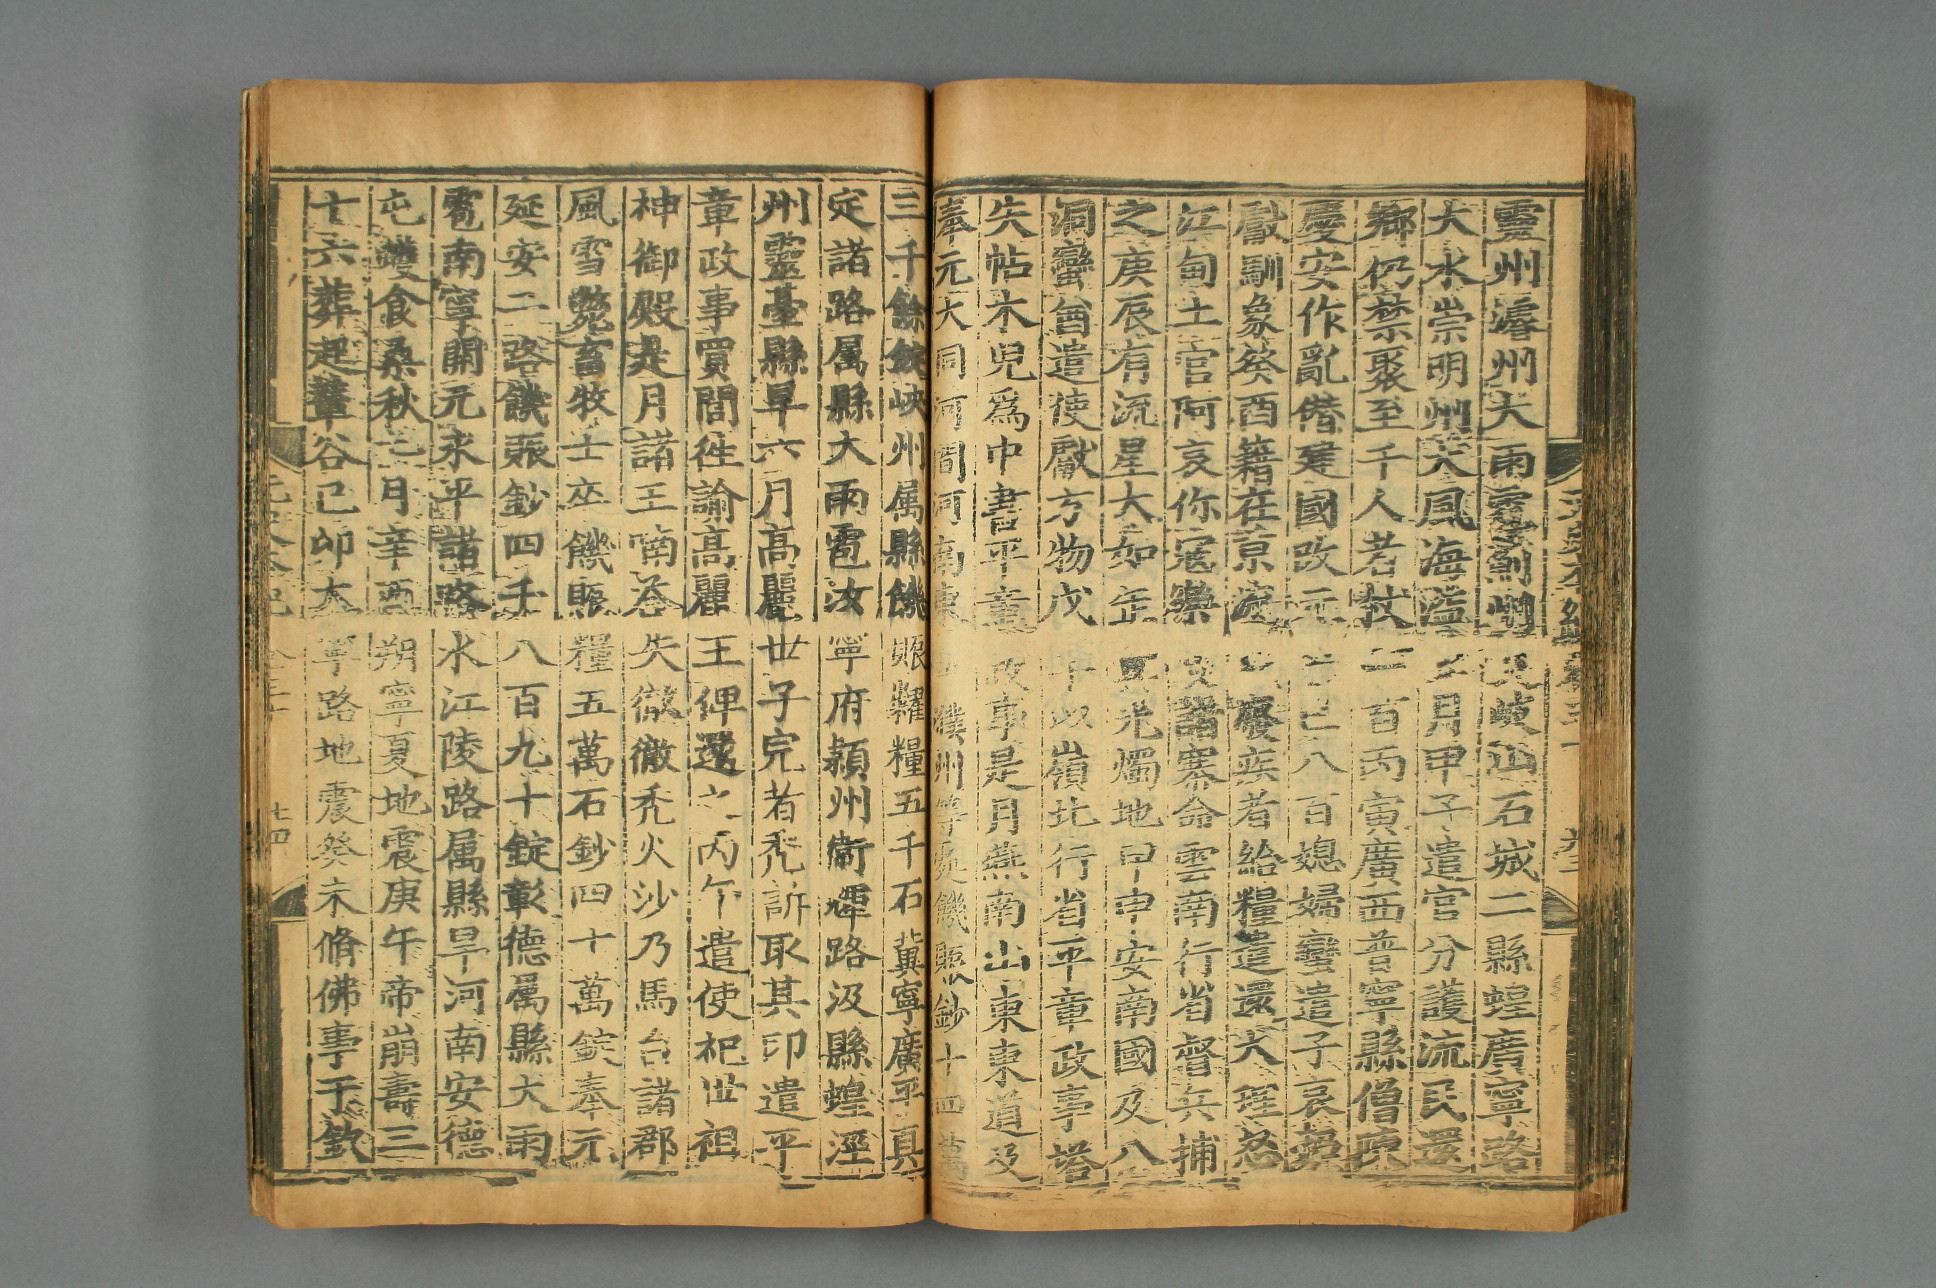 靈州濬州大雨雹薊州及岐山石城二縣蝗廣寧路
大水崇明州大風海溢五月甲子遣官分護流民還
鄉仍禁聚至千人者杖一百丙寅廣西普寧縣僧陳
慶安作亂僭建國改元己巳八百媳婦蠻遣子哀
獻馴象癸酉籍在京流民廢疾者給糧遣還大理怒
江甸土官阿哀你寇樂辰諸寨命雲南行省督兵捕
之庚辰有流星大如缶其光燭地甲申安南國及八
洞蠻酋遣使獻方物戊子以嶺北行省平章政事塔
失帖木兒爲中書平章政事是月燕南山東東道及
奉元大同河間河南東平濮州等處饑賑鈔十四萬
三千餘錠峽州属縣饑賑糶糧五千石冀寧廣平真
定諸路属縣大雨雹汝寧府潁州衛輝路汲縣蝗涇
州靈臺縣旱六月高麗世子完者禿訴取其印遣平
章政事買閭徃諭高麗王俾還之丙午遣使祀世祖
神御殿是月諸王喃荅失徹徹禿火沙乃馬台諸郡
風雪斃畜牧士卒饑賑糧五萬石鈔四十萬錠奉元
延安二路饑賑鈔四千八百九十錠彰德属縣大雨
雹南寧開元永平諸路水江陵路属縣旱河南安德
屯蠖食桑秋七月辛酉朔寧夏地震庚午帝崩壽三
十六葬起輦谷己卯大寧路地震癸未脩佛事于欽
元史本紀 卷三十